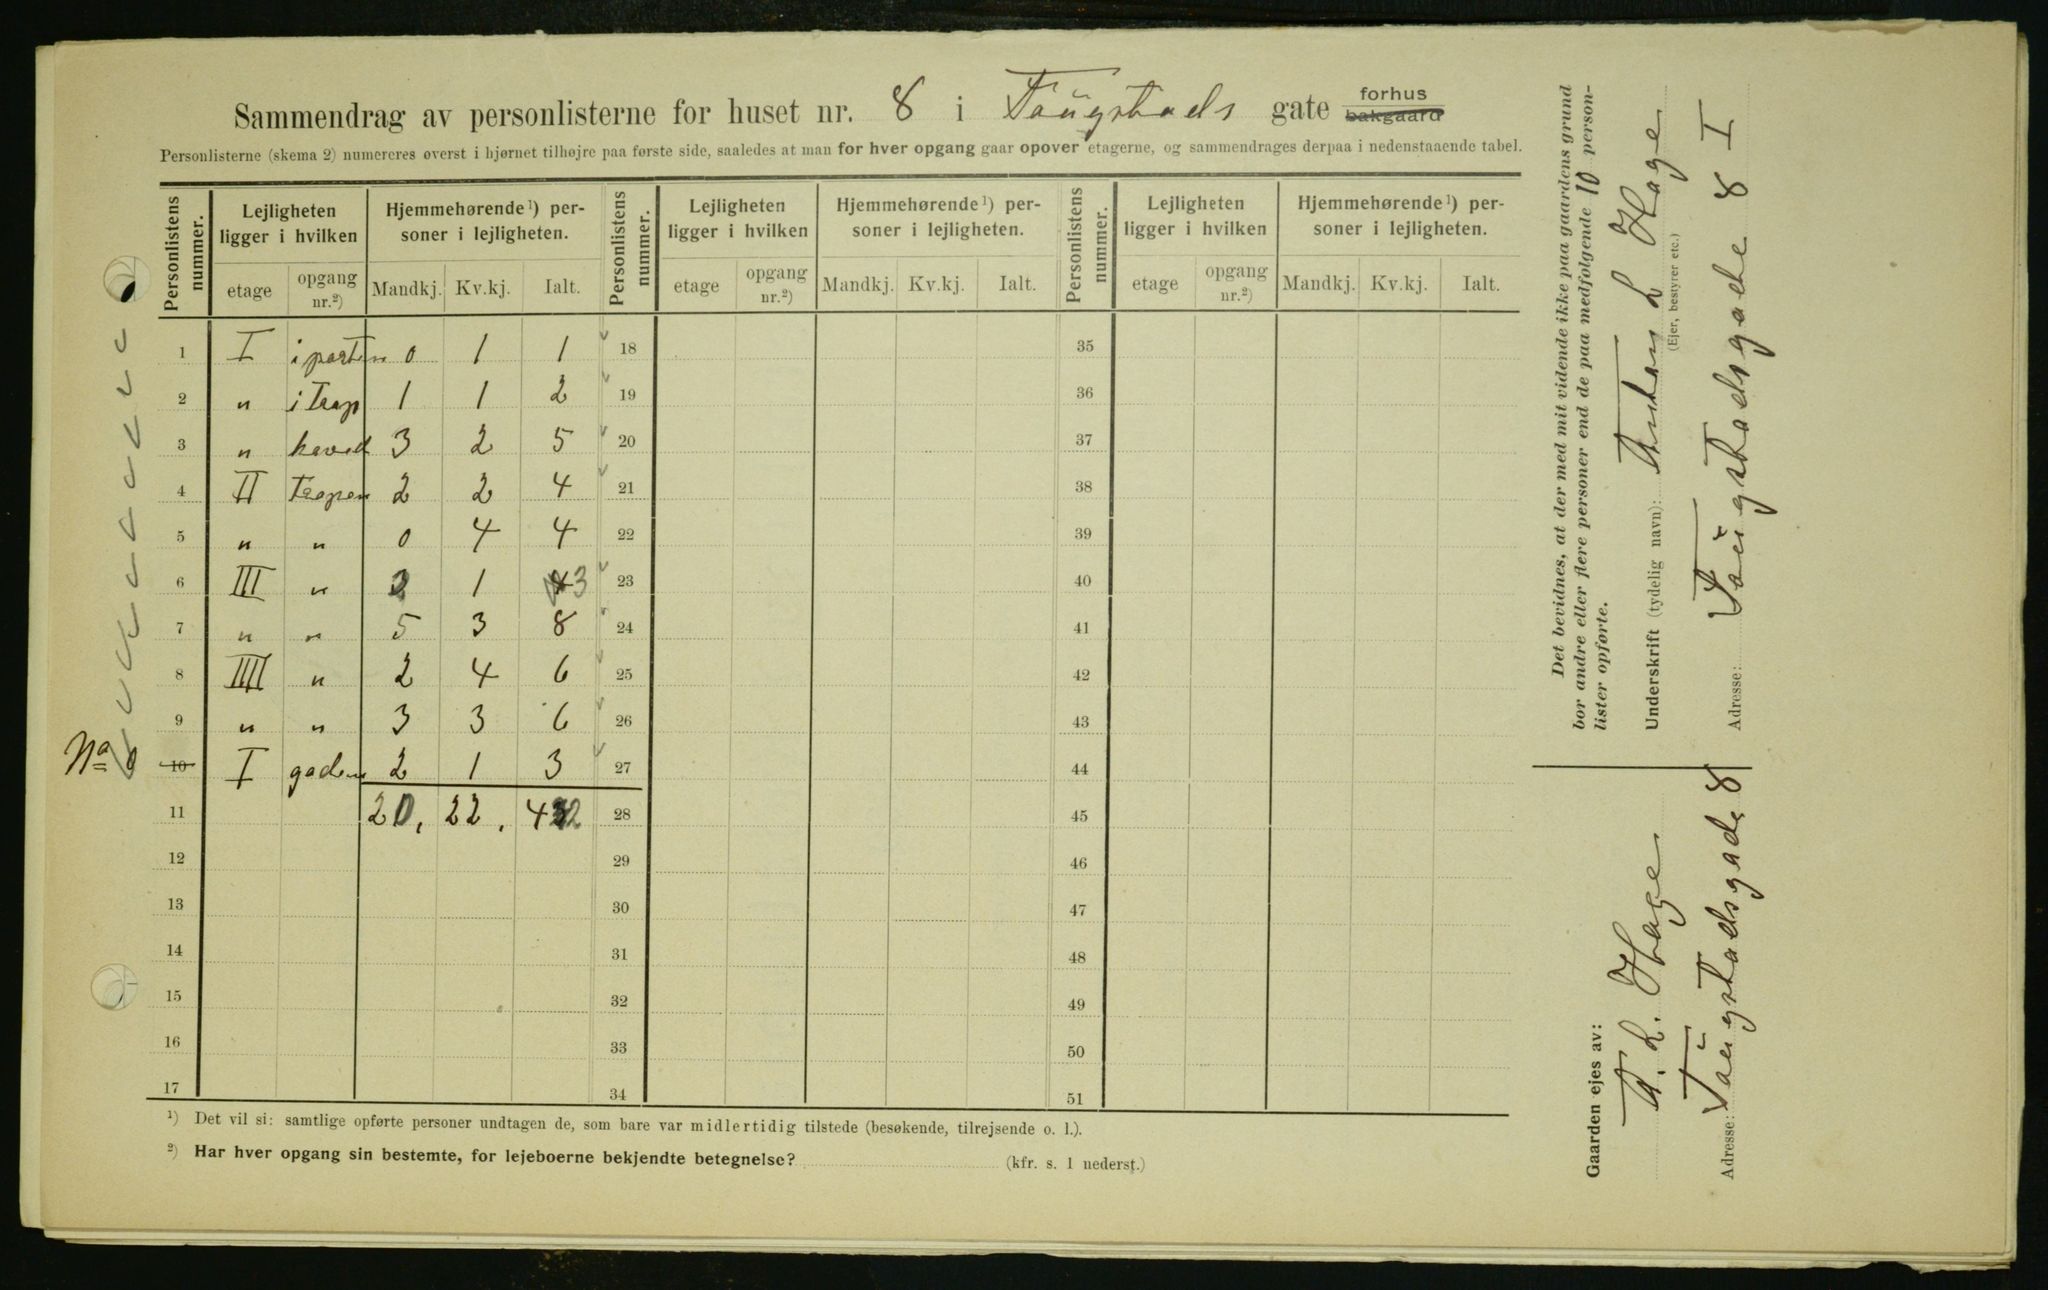 Sammendrag av personlisterne for huset nr. 8 i Taugstads gate forhus bakgaard
Personlisterne (skema 2) numereres øverst i hjørnet tilhøjre paa første side, saaledes at man for hver opgang gaar opover etagerne, og sammendrages derpaa i nedenstaaende tabel.
Personlistens nummer. Lejligheten ligger i hvilken Hjemmehørende ¹) personer i lejligheten. Personlistens nummer. Lejligheten ligger i hvilken Hjemmehørende ¹) personer i lejligheten. Personlistens nummer. Lejligheten ligger i hvilken Hjemmehørende ¹) personer i lejligheten.
etage opgang nr.²) Mandkj. Kv.kj. Ialt. etage opgang nr.²) Mandkj. Kv.kj. Ialt. etage opgang nr.²) Mandkj. Kv.kj. Ialt.
1 I i porten 0 1 1 18 35
2 " i Trap 1 1 2 19 36
3 " 3 2 5 20 37
4 II Trapen 2 2 4 21 38
5 " " 0 4 4 22 39
6 III " 2 1 3 23 40
7 " " 5 3 8 24 41
8 IIII " 2 4 6 25 42
9 " " 3 3 6 26 43
10 I gaden 2 1 3 27 44
11 20, 22, 42 28 45
12 29 46
13 30 47
14 31 48
15 32 49
16 33 50
17 34 51
¹) Det vil si: samtlige opførte personer undtagen de, som bare var midlertidig tilstede (besøkende, tilrejsende o. l.).
²) Har hver opgang sin bestemte, for lejeboerne bekjendte betegnelse? (kfr. s. 1 nederst.)
Det bevidnes, at der med mit vidende ikke paa gaardens grund
bor andre eller flere personer end de paa medfølgende 10 person-
lister opførte.
Underskrift (tydelig navn): Anton L Hage
(Ejer, bestyrer etc.)
Adresse: Taugstadsgade 8 I
Gaarden ejes av:
A. L. Hage
Adresse: Taugstadsgade 8